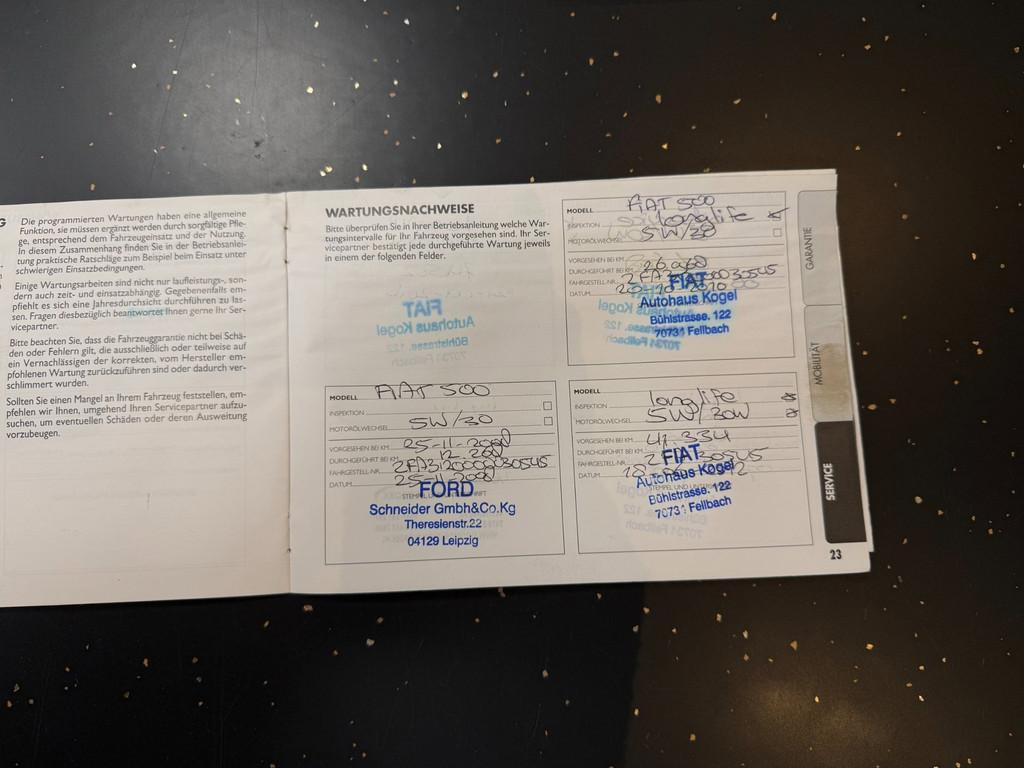 G
Die programmierten Wartungen haben eine allgemeine
Funktion, sie müssen ergänzt werden durch sorgfältige Pfle-
ge, entsprechend dem Fahrzeugeinsatz und der Nutzung.
In diesem Zusammenhang finden Sie in der Betriebsanlei-
tung praktische Ratschläge zum Beispiel beim Einsatz unter
schwierigen Einsatzbedingungen.
Einige Wartungsarbeiten sind nicht nur laufleistungs-, son-
dern auch zeit- und einsatzabhängig. Gegebenenfalls em-
pfiehlt es sich eine Jahresdurchsicht durchführen zu las-
sen. Fragen diesbezüglich beantwortet Ihnen gerne Ihr Ser-
vicepartner.
Bitte beachten Sie, dass die Fahrzeuggarantie nicht bei Schä-
den oder Fehlern gilt, die ausschließlich oder teilweise auf
ein Vernachlässigen der korrekten, vom Hersteller em-
pfohlenen Wartung zurückzuführen sind oder dadurch ver-
schlimmert wurden.
Sollten Sie einen Mangel an Ihrem Fahrzeug feststellen, em-
pfehlen wir Ihnen, umgehend Ihren Servicepartner aufzu-
suchen, um eventuellen Schäden oder deren Ausweitung
vorzubeugen.
WARTUNGSNACHWEISE
Bitte überprüfen Sie in Ihrer Betriebsanleitung welche War-
tungsintervalle für Ihr Fahrzeug vorgesehen sind. Ihr Ser-
vicepartner bestätigt jede durchgeführte Wartung jeweils
in einem der folgenden Felder.
FIAT
Autohaus Kogel
Bühlstrasse. 122
70731 Fellbach
MODELL FIAT 500
INSPEKTION longlife
MOTORÖLWECHSEL 5W/30
VORGESEHEN BEI KM
DURCHGEFÜHRT BEI KM
FAHRGESTELL-NR.
DATUM
FIAT
Autohaus Kogel
Bühlstrasse. 122
70731 Fellbach
MODELL FIAT 500
INSPEKTION
MOTORÖLWECHSEL 5W/30
VORGESEHEN BEI KM 25-11-
DURCHGEFÜHRT BEI KM
FAHRGESTELL-NR.
DATUM 25-11-
FORD
Schneider Gmbh&Co.Kg
Theresienstr.22
04129 Leipzig
MODELL
INSPEKTION longlife
MOTORÖLWECHSEL 5W/30W
VORGESEHEN BEI KM 41.334
DURCHGEFÜHRT BEI KM
FAHRGESTELL-NR. 30545
DATUM
FIAT
Autohaus Kogel
Bühlstrasse. 122
70731 Fellbach
GARANTIE
MOBILITÄT
SERVICE
23